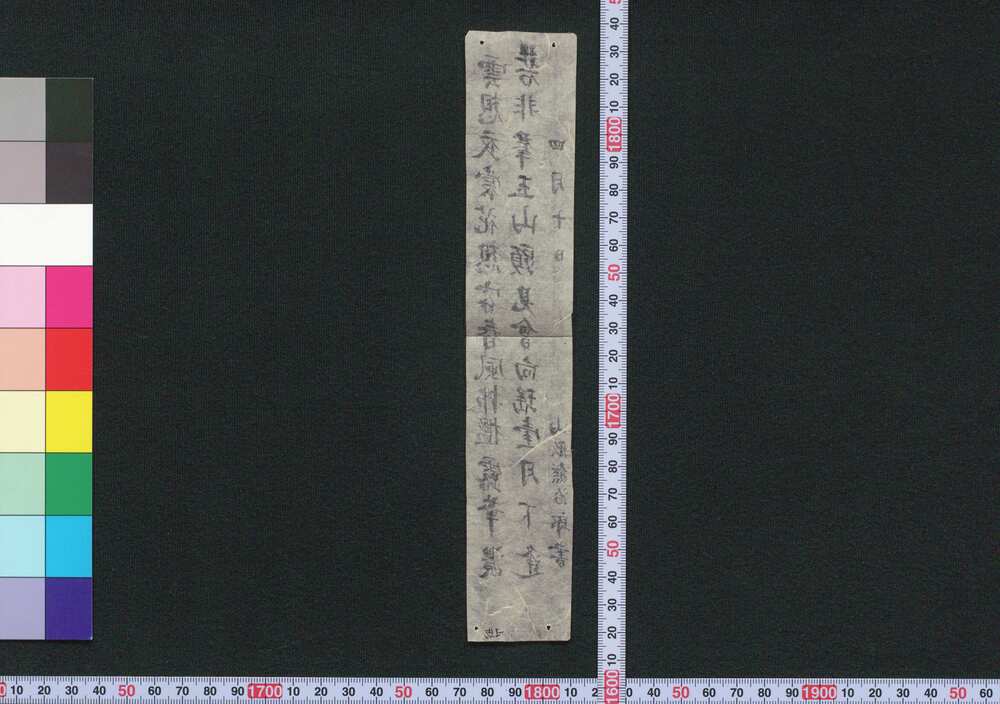 雲想衣裳花想容春風拂檻露華濃
若非羣玉山頭見會向瑤臺月下逢
四月十日
山 熊治郎書